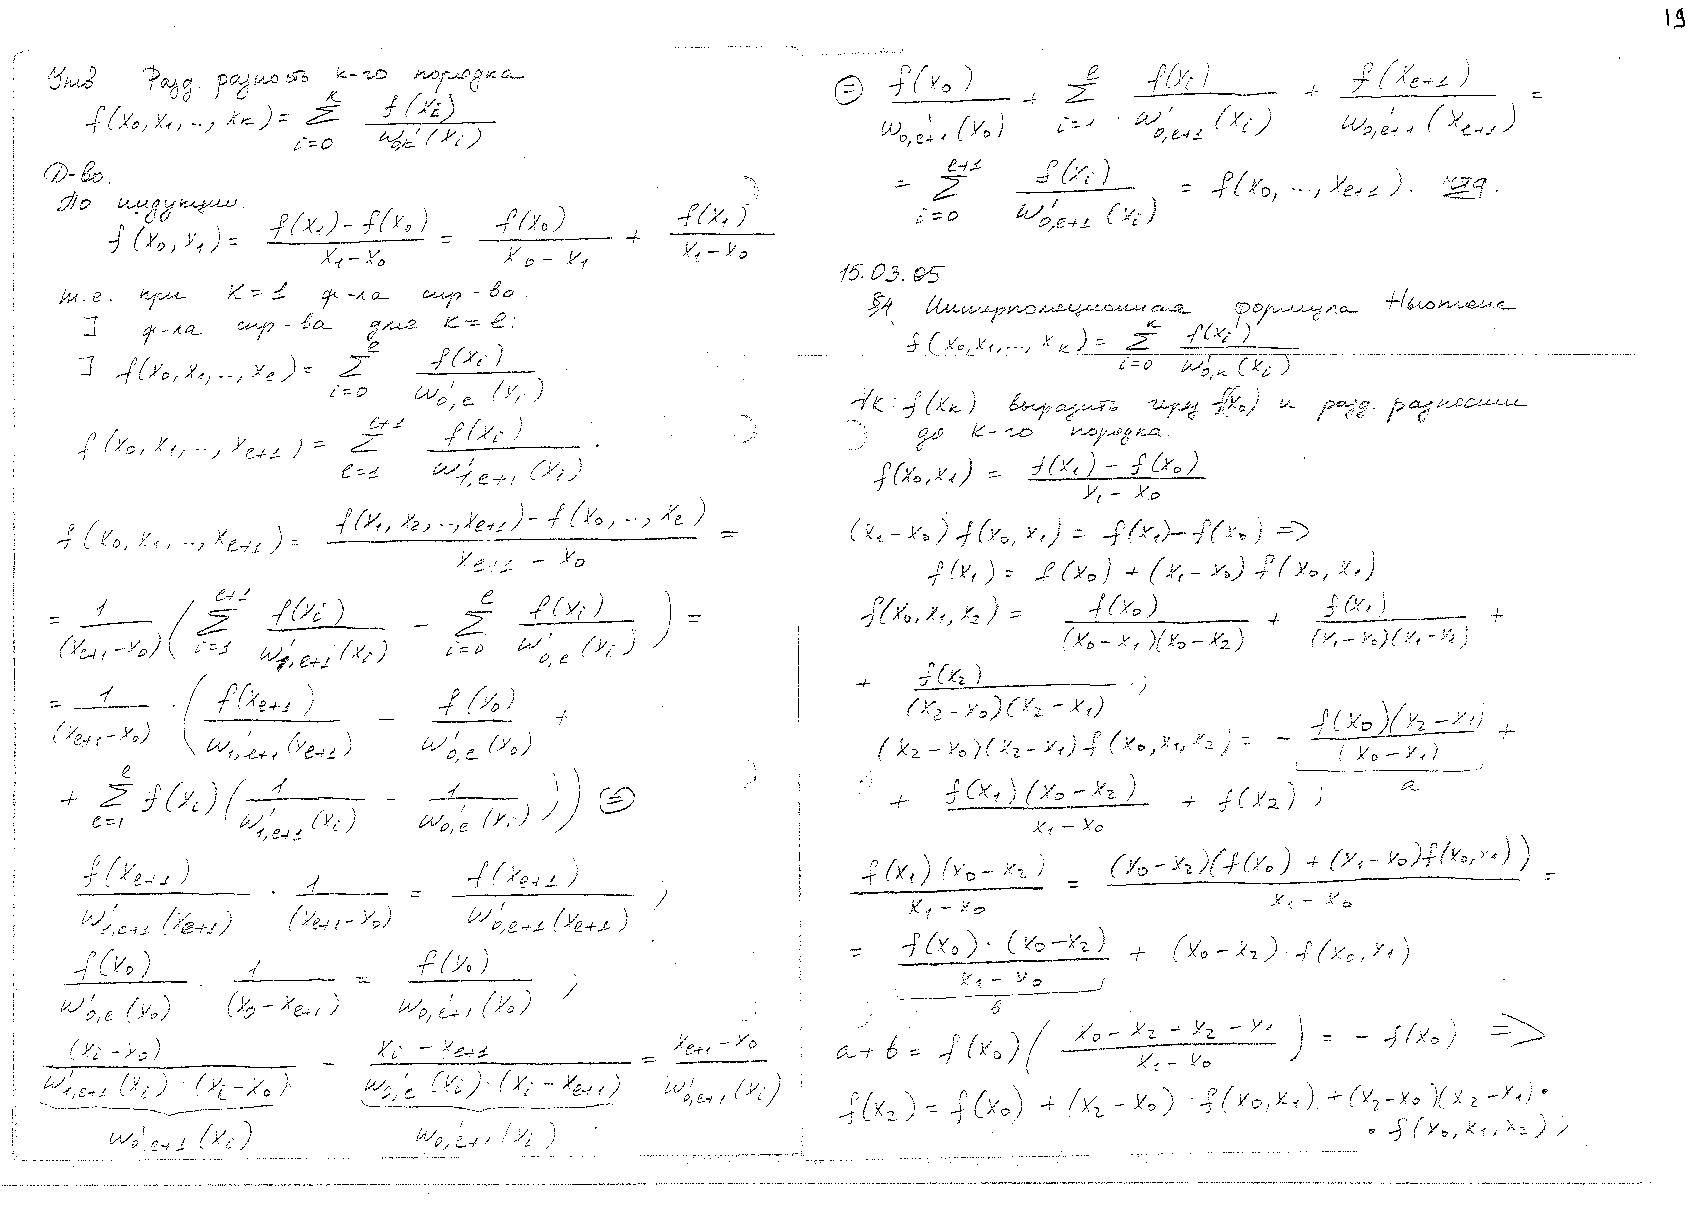 19
Утв Разд. разность k-го порядка
f(x₀,x₁,..,x_k) = Σ_{i=0}^{k} f(x_i)/ω'_{0,k}(x_i)
Д-во.
По индукции.
f(x₀,x₁) = (f(x₁)-f(x₀))/(x₁-x₀) = f(x₀)/(x₀-x₁) + f(x₁)/(x₁-x₀)
т.е. при k=1 ф-ла спр-ва.
] ф-ла спр-ва для k=l:
] f(x₀,x₁,..,x_l) = Σ_{i=0}^{l} f(x_i)/ω'_{0,l}(x_i)
f(x₀,x₁,..,x_{l+1}) = Σ_{l=1}^{l+1} f(x_i)/ω'_{1,l+1}(x_i).
f(x₀,x₁,..,x_{l+1}) = (f(x₁,x₂,..,x_{l+1})-f(x₀,..,x_l))/(x_{l+1}-x₀) =
= 1/(x_{l+1}-x₀) (Σ_{i=1}^{l+1} f(x_i)/ω'_{0,l+1}(x_i) - Σ_{i=0}^{l} f(x_i)/ω'_{0,l}(x_i)) =
= 1/(x_{l+1}-x₀) · (f(x_{l+1})/ω'_{1,l+1}(x_{l+1}) - f(x₀)/ω'_{0,l}(x₀) +
+ Σ_{l=1}^{l} f(x_i)(1/ω'_{1,l+1}(x_i) - 1/ω'_{0,l}(x_i))) ⊜
f(x_{l+1})/ω'_{1,l+1}(x_{l+1}) · 1/(x_{l+1}-x₀) = f(x_{l+1})/ω'_{0,l+1}(x_{l+1}) ;
f(x₀)/ω'_{0,l}(x₀) · 1/(x₀-x_{l+1}) = f(x₀)/ω'_{0,l+1}(x₀) ;
(x_i-x₀)/(ω'_{1,l+1}(x_i)·(x_i-x₀)) - (x_i-x_{l+1})/(ω'_{0,l}(x_i)·(x_i-x_{l+1})) = (x_{l+1}-x₀)/ω'_{0,l+1}(x_i)
ω'_{0,l+1}(x_i) ω'_{0,l+1}(x_i)
⊜ f(x₀)/ω'_{0,l+1}(x₀) + Σ_{i=1}^{l} f(x_i)/ω'_{0,l+1}(x_i) + f(x_{l+1})/ω'_{0,l+1}(x_{l+1}) =
= Σ_{i=0}^{l+1} f(x_i)/ω'_{0,l+1}(x_i) = f(x₀,..,x_{l+1}). чтд.
15.03.05
§4 Интерполяционная формула Ньютона
f(x₀,x₁,..,x_k) = Σ_{i=0}^{k} f(x_i)/ω'_{0,k}(x_i)
∀k: f(x_k) выразить через f(x₀) и разд. разности
до k-го порядка.
f(x₀,x₁) = (f(x₁)-f(x₀))/(x₁-x₀)
(x₁-x₀)f(x₀,x₁) = f(x₁)-f(x₀) =>
f(x₁) = f(x₀)+(x₁-x₀)f(x₀,x₁)
f(x₀,x₁,x₂) = f(x₀)/((x₀-x₁)(x₀-x₂)) + f(x₁)/((x₁-x₀)(x₁-x₂)) +
+ f(x₂)/((x₂-x₀)(x₂-x₁)) ;
(x₂-x₀)(x₂-x₁)f(x₀,x₁,x₂) = - f(x₀)(x₂-x₁)/(x₀-x₁) +
a
+ f(x₁)(x₀-x₂)/(x₁-x₀) + f(x₂) ;
f(x₁)(x₀-x₂)/(x₁-x₀) = (x₀-x₂)(f(x₀)+(x₁-x₀)f(x₀,x₁))/(x₁-x₀) =
= f(x₀)·(x₀-x₂)/(x₁-x₀) + (x₀-x₂)·f(x₀,x₁)
б
a+b = f(x₀)((x₀-x₂-x₂-x₁)/(x₁-x₀)) = -f(x₀) =>
f(x₂) = f(x₀)+(x₂-x₀)·f(x₀,x₁)+(x₂-x₀)(x₂-x₁)·
·f(x₀,x₁,x₂) ;